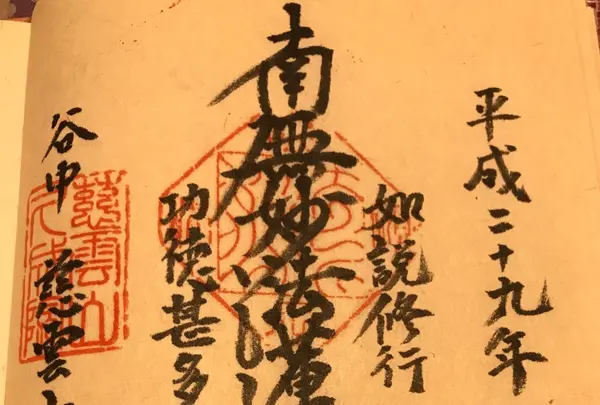 平成二十九年
如説修行
南無妙法蓮
功徳甚多
谷中 慈雲
慈雲山